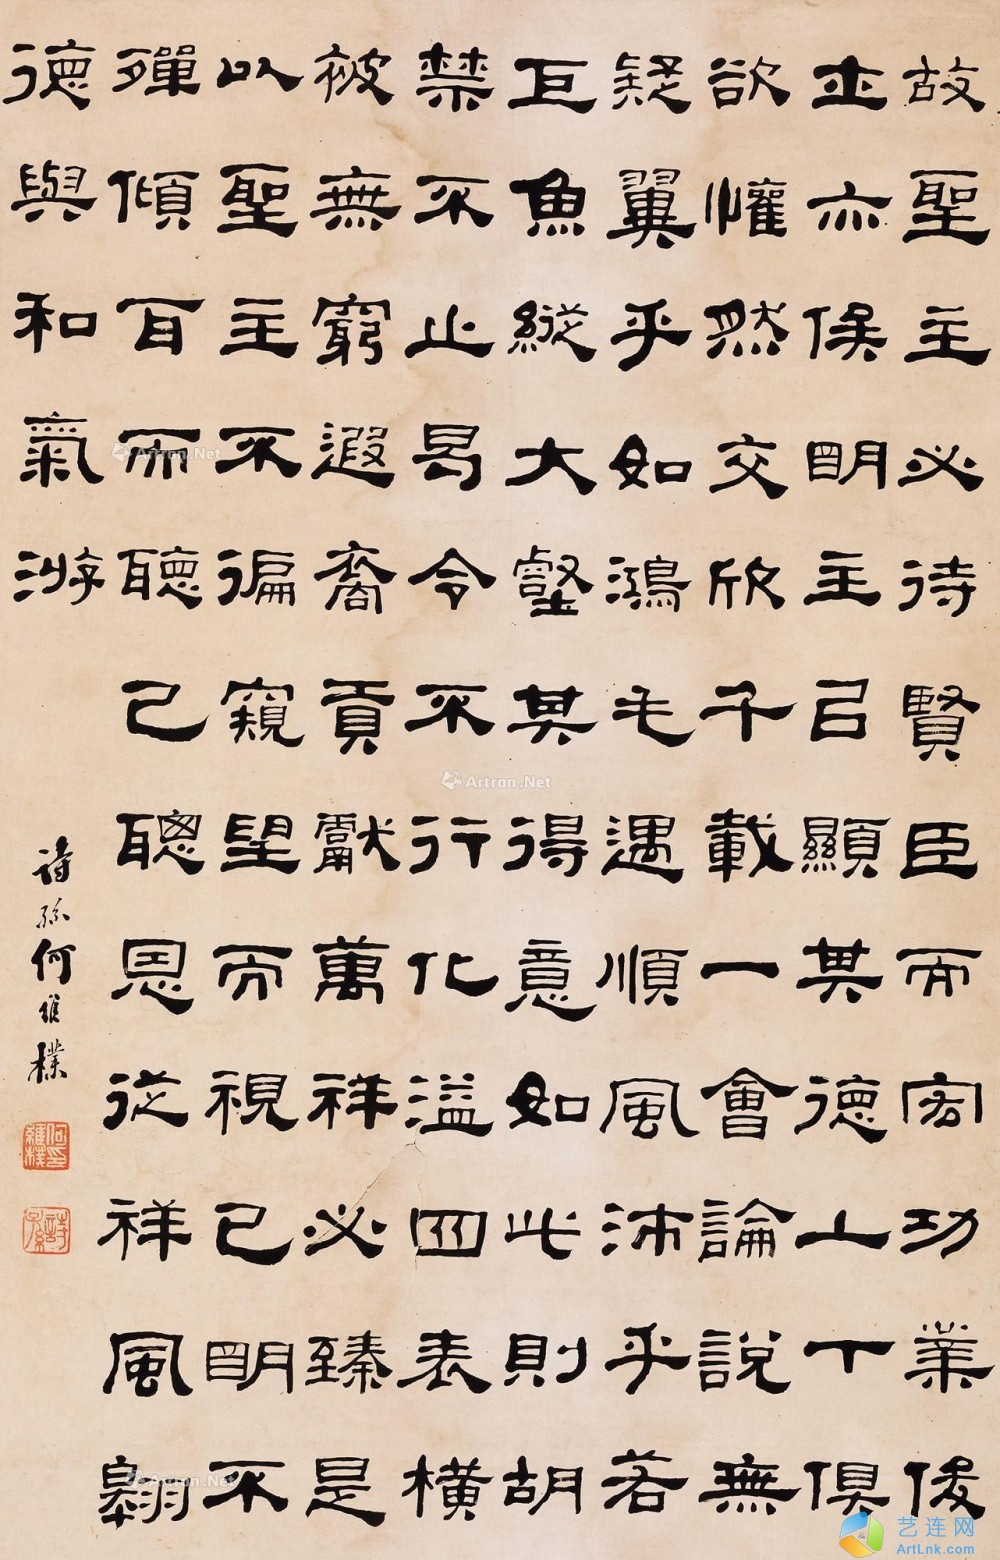 故聖主必待賢臣而宏功業俊
士亦俟明主㠯顯其德上下俱
欲懽然交欣千載一會論說無
疑翼乎如鴻毛遇順風沛乎若
巨魚縱大壑其得意如此則胡
禁不止曷令不行化溢四表橫
被無窮遐裔貢獻萬祥必臻是
以聖主不徧窺望而視已明不
殫傾耳而聽已聰恩從祥風翱
德與和氣游
詩孫何維樸
何維樸印
詩孫
Artron.Net
Artron.Net
Artron.Net
艺连网
ArtLnk.com